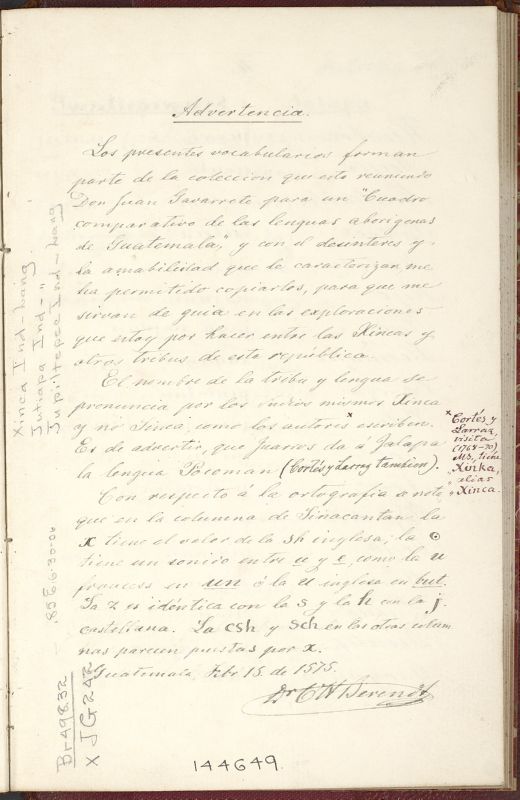 Advertencia.
Los presentes vocabularios forman
parte de la coleccion que está reuniendo
Don Juan Gavarrete para un "Cuadro
comparativo de las lenguas aborígenas
de Guatemala", y con el desinteres y
la amabilidad que le caracterizan, me
ha permitido copiarlos, para que me
sirvan de guia en las exploraciones
que estoy por hacer entre las Xincas y
otras tribus de esta república.
El nombre de la tribu y lengua se
pronuncia por los indios mismos Xinca
y no Sinca, como los autores x escriben.
Es de advertir, que Juarros da á Jalapa
la lengua Pocoman (Cortés y Larraz tambien).
Con respecto á la ortografia a noto,
que en la columna de Sinacantan la
x tiene el valor de la sh inglesa; la
tiene un sonido entre u y e, como la u
francesa en un ó la u inglesa en but.
La z es idéntica con la s y la h con la j
castellana. La csh y sch en las otras colum
nas parecen puestas por x.
Guatemala, Febr 15 de 1875.
Dr C H Berendt
x Cortés y
Larraz,
visita
(1768-70)
MS, tiene
Xinka,
alias
Xinca.
Xinca Ind-lang.
Jutiapa Ind-"
Jupiltepec Ind-lang
Br 498.32
x JG242
144649.